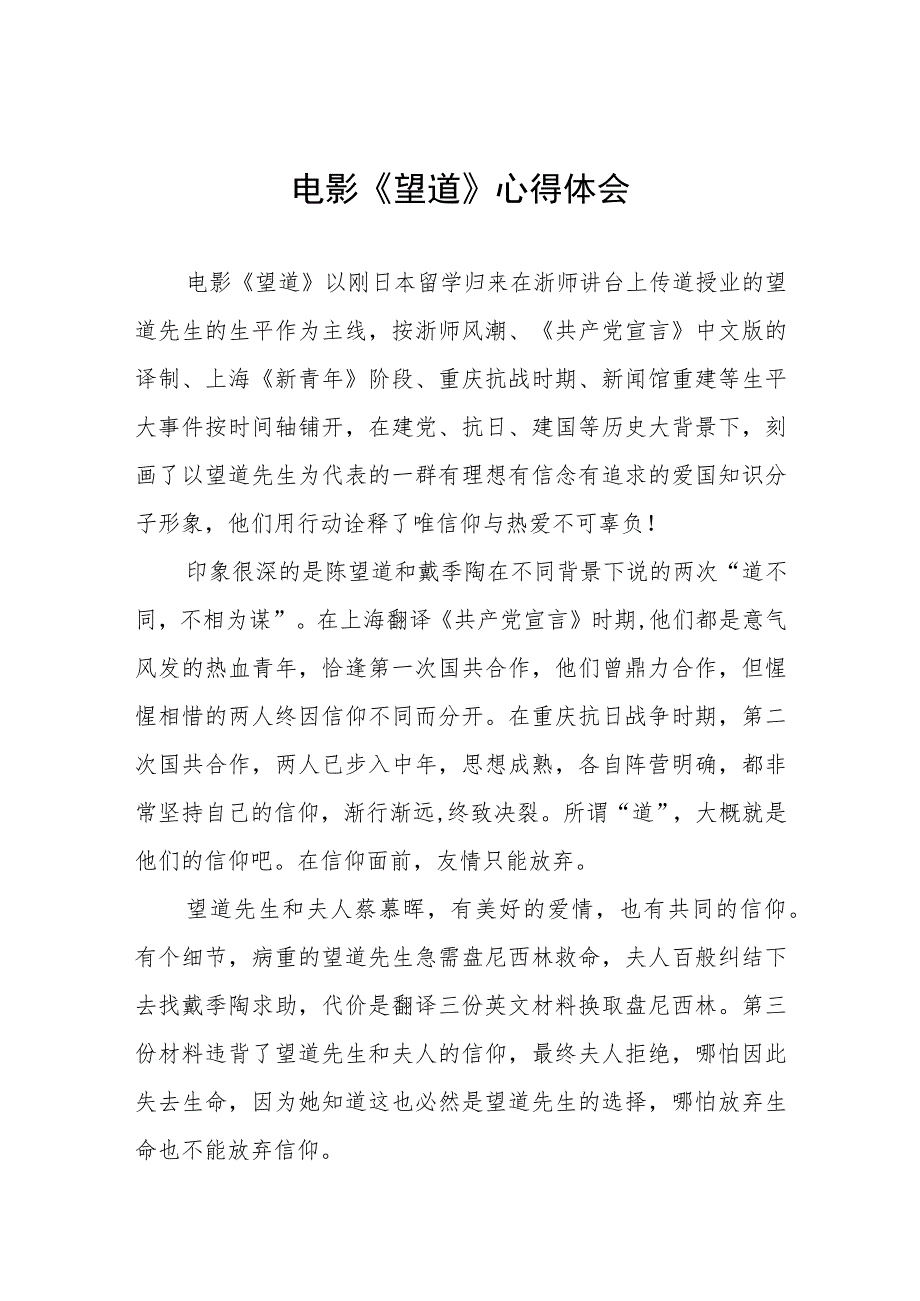 电影《望道》心得体会
电影《望道》以刚日本留学归来在浙师讲台上传道授业的望
道先生的生平作为主线，按浙师风潮、《共产党宣言》中文版的
译制、上海《新青年》阶段、重庆抗战时期、新闻馆重建等生平
大事件按时间轴铺开，在建党、抗日、建国等历史大背景下，刻
画了以望道先生为代表的一群有理想有信念有追求的爱国知识分
子形象，他们用行动诠释了唯信仰与热爱不可辜负！
印象很深的是陈望道和戴季陶在不同背景下说的两次“道不
同，不相为谋”。在上海翻译《共产党宣言》时期,他们都是意气
风发的热血青年，恰逢第一次国共合作，他们曾鼎力合作，但惺
惺相惜的两人终因信仰不同而分开。在重庆抗日战争时期，第二
次国共合作，两人已步入中年，思想成熟，各自阵营明确，都非
常坚持自己的信仰，渐行渐远,终致决裂。所谓“道”，大概就是
他们的信仰吧。在信仰面前，友情只能放弃。
望道先生和夫人蔡慕晖，有美好的爱情，也有共同的信仰。
有个细节，病重的望道先生急需盘尼西林救命，夫人百般纠结下
去找戴季陶求助，代价是翻译三份英文材料换取盘尼西林。第三
份材料违背了望道先生和夫人的信仰，最终夫人拒绝，哪怕因此
失去生命，因为她知道这也必然是望道先生的选择，哪怕放弃生
命也不能放弃信仰。